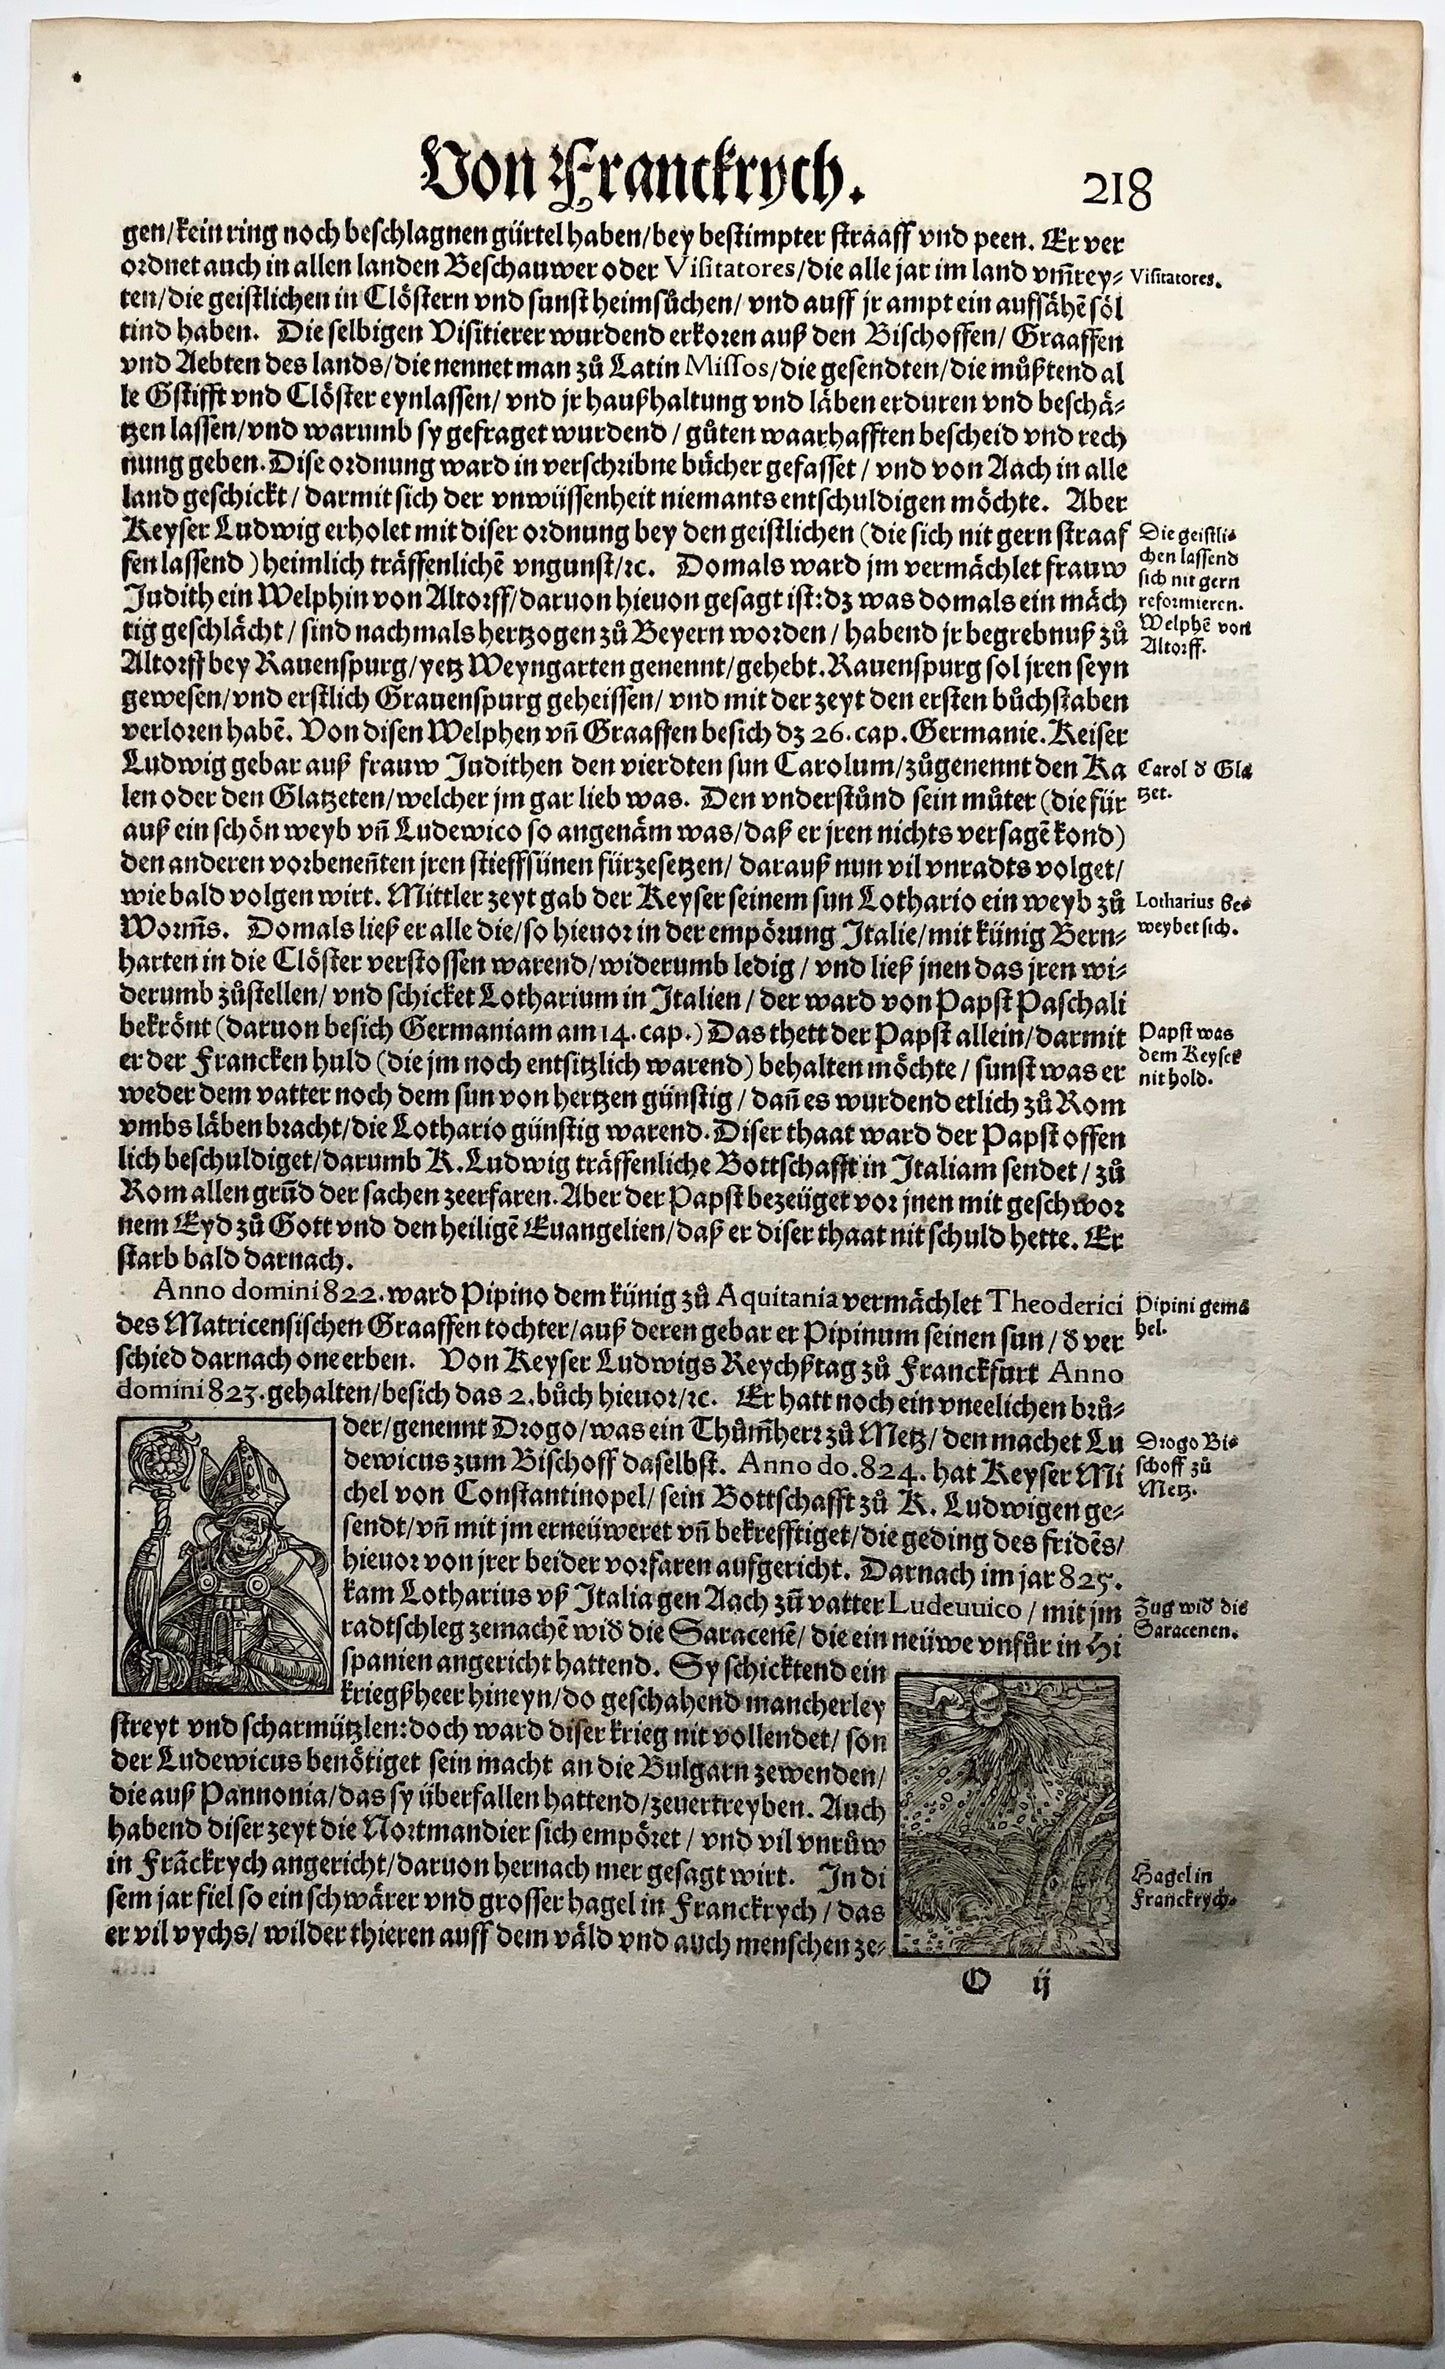 Von Franckrych.
218
gen/kein ring noch beschlagnen gürtel haben/bey bestimpter straaff vnd peen. Er ver
ordnet auch in allen landen Beschauwer oder Visitatores/die alle jar im land vm̃rey-
ten/die geistlichen in Clöstern vnd sunst heimsůchen/ vnd auff jr ampt ein auffsähẽ söl
tind haben. Die selbigen Visitierer wurdend erkoren auß den Bischoffen/ Graaffen
vnd Aebten des lands/die nennet man zů Latin Missos/die gesendten/die můßtend al
le Gstifft vnd Clöster eynlassen/ vnd jr haußhaltung vnd läben erduren vnd beschä-
tzen lassen/vnd warumb sy gefraget wurdend / gůten waarhafften bescheid vnd rech
nung geben. Dise ordnung ward in verschribne bücher gefasset / vnd von Aach in alle
land geschickt / darmit sich der vnwüssenheit niemants entschuldigen möchte. Aber
Keyser Ludwig erholet mit diser ordnung bey den geistlichen (die sich nit gern straaf
fen lassend ) heimlich träffenlichẽ vngunst/ꝛc. Domals ward jm vermächlet frauw
Judith ein Welphin von Altorff/daruon hieuon gesagt ist: dz was domals ein mäch
tig geschlächt / sind nachmals hertzogen zů Beyern worden / habend jr begrebnuß zů
Altorff bey Rauenspurg/yetz Weyngarten genennt/gehebt. Rauenspurg sol jren seyn
gewesen/vnd erstlich Grauenspurg geheissen/ vnd mit der zeyt den ersten bůchstaben
verloren habẽ. Von disen Welphen vñ Graaffen besich dz 26. cap. Germanie. Keiser
Ludwig gebar auß frauw Judithen den vierdten sun Carolum/zůgenennt den Ka
len oder den Glatzeten/welcher jm gar lieb was. Den vnderstůnd sein můter (die für
auß ein schön weyb vñ Ludewico so angenäm was/daß er jren nichts versagẽ kond)
den anderen vorbeneñten jren stieffsünen fürzesetzen/ darauß nun vil vnradts volget/
wie bald volgen wirt. Mittler zeyt gab der Keyser seinem sun Lothario ein weyb zů
Worm̃s. Domals ließ er alle die/so hieuor in der empörung Italie/mit künig Bern-
harten in die Clöster verstossen warend/widerumb ledig / vnd ließ jnen das jren wi-
derumb zůstellen/ vnd schicket Lotharium in Italien / der ward von Papst Paschali
bekrönt (daruon besich Germaniam am 14. cap.) Das thett der Papst allein/darmit
er der Francken huld (die jm noch entsitzlich warend) behalten möchte / sunst was er
weder dem vatter noch dem sun von hertzen günstig / dañ es wurdend etlich zů Rom
vmbs läben bracht/die Lothario günstig warend. Diser thaat ward der Papst offen
lich beschuldiget/darumb K. Ludwig träffenliche Bottschafft in Italiam sendet / zů
Rom allen grũd der sachen zeerfaren. Aber der Papst bezeüget vor jnen mit geschwor
nem Eyd zů Gott vnd den heiligẽ Euangelien/daß er diser thaat nit schuld hette. Er
starb bald darnach.
Anno domini 822. ward Pipino dem künig zů Aquitania vermächlet Theoderici
des Matricensischen Graaffen tochter/auß deren gebar er Pipinum seinen sun / d̕ ver
schied darnach one erben. Von Keyser Ludwigs Reychßtag zů Franckfurt Anno
domini 823. gehalten/besich das 2. bůch hieuor/ꝛc. Er hatt noch ein vneelichen brů-
der/genennt Drogo/was ein Thům̃herr zů Metz/ den machet Lu
dewicus zum Bischoff daselbst. Anno do. 824. hat Keyser Mi
chel von Constantinopel/ sein Bottschafft zů K. Ludwigen ge-
sendt/vñ mit jm erneüweret vñ bekrefftiget/die geding des fridẽs/
hieuor von jrer beider vorfaren aufgericht. Darnach im jar 825.
kam Lotharius vß Italia gen Aach zů vatter Ludeuuico / mit jm
radtschleg zemachẽ wid̕ die Saracenẽ/ die ein neüwe vnfůr in Hi
spanien angericht hattend. Sy schicktend ein
kriegßheer hineyn/do geschahend mancherley
streyt vnd scharmützlen: doch ward diser krieg nit vollendet/ son
der Ludewicus benötiget sein macht an die Bulgarn zewenden/
die auß Pannonia/das sy überfallen hattend/zeuertreyben. Auch
habend diser zeyt die Nortmandier sich empöret / vnd vil vnrůw
in Frãckrych angericht/daruon hernach mer gesagt wirt. In di
sem jar fiel so ein schwärer vnd grosser hagel in Franckrych / das
er vil vychs/ wilder thieren auff dem väld vnd auch menschen ze-
O ij
Visitatores.
Die geistli-
chen lassend
sich nit gern
reformieren.
Welphẽ von
Altorff.
Carol d̕ Gla
tzet.
Lotharius be-
weybet sich.
Papst was
dem Keyser
nit hold.
Pipini gemä
hel.
Drogo Bi-
schoff zů
Metz.
Zug wid̕ die
Saracenen.
Hagel in
Franckrych.